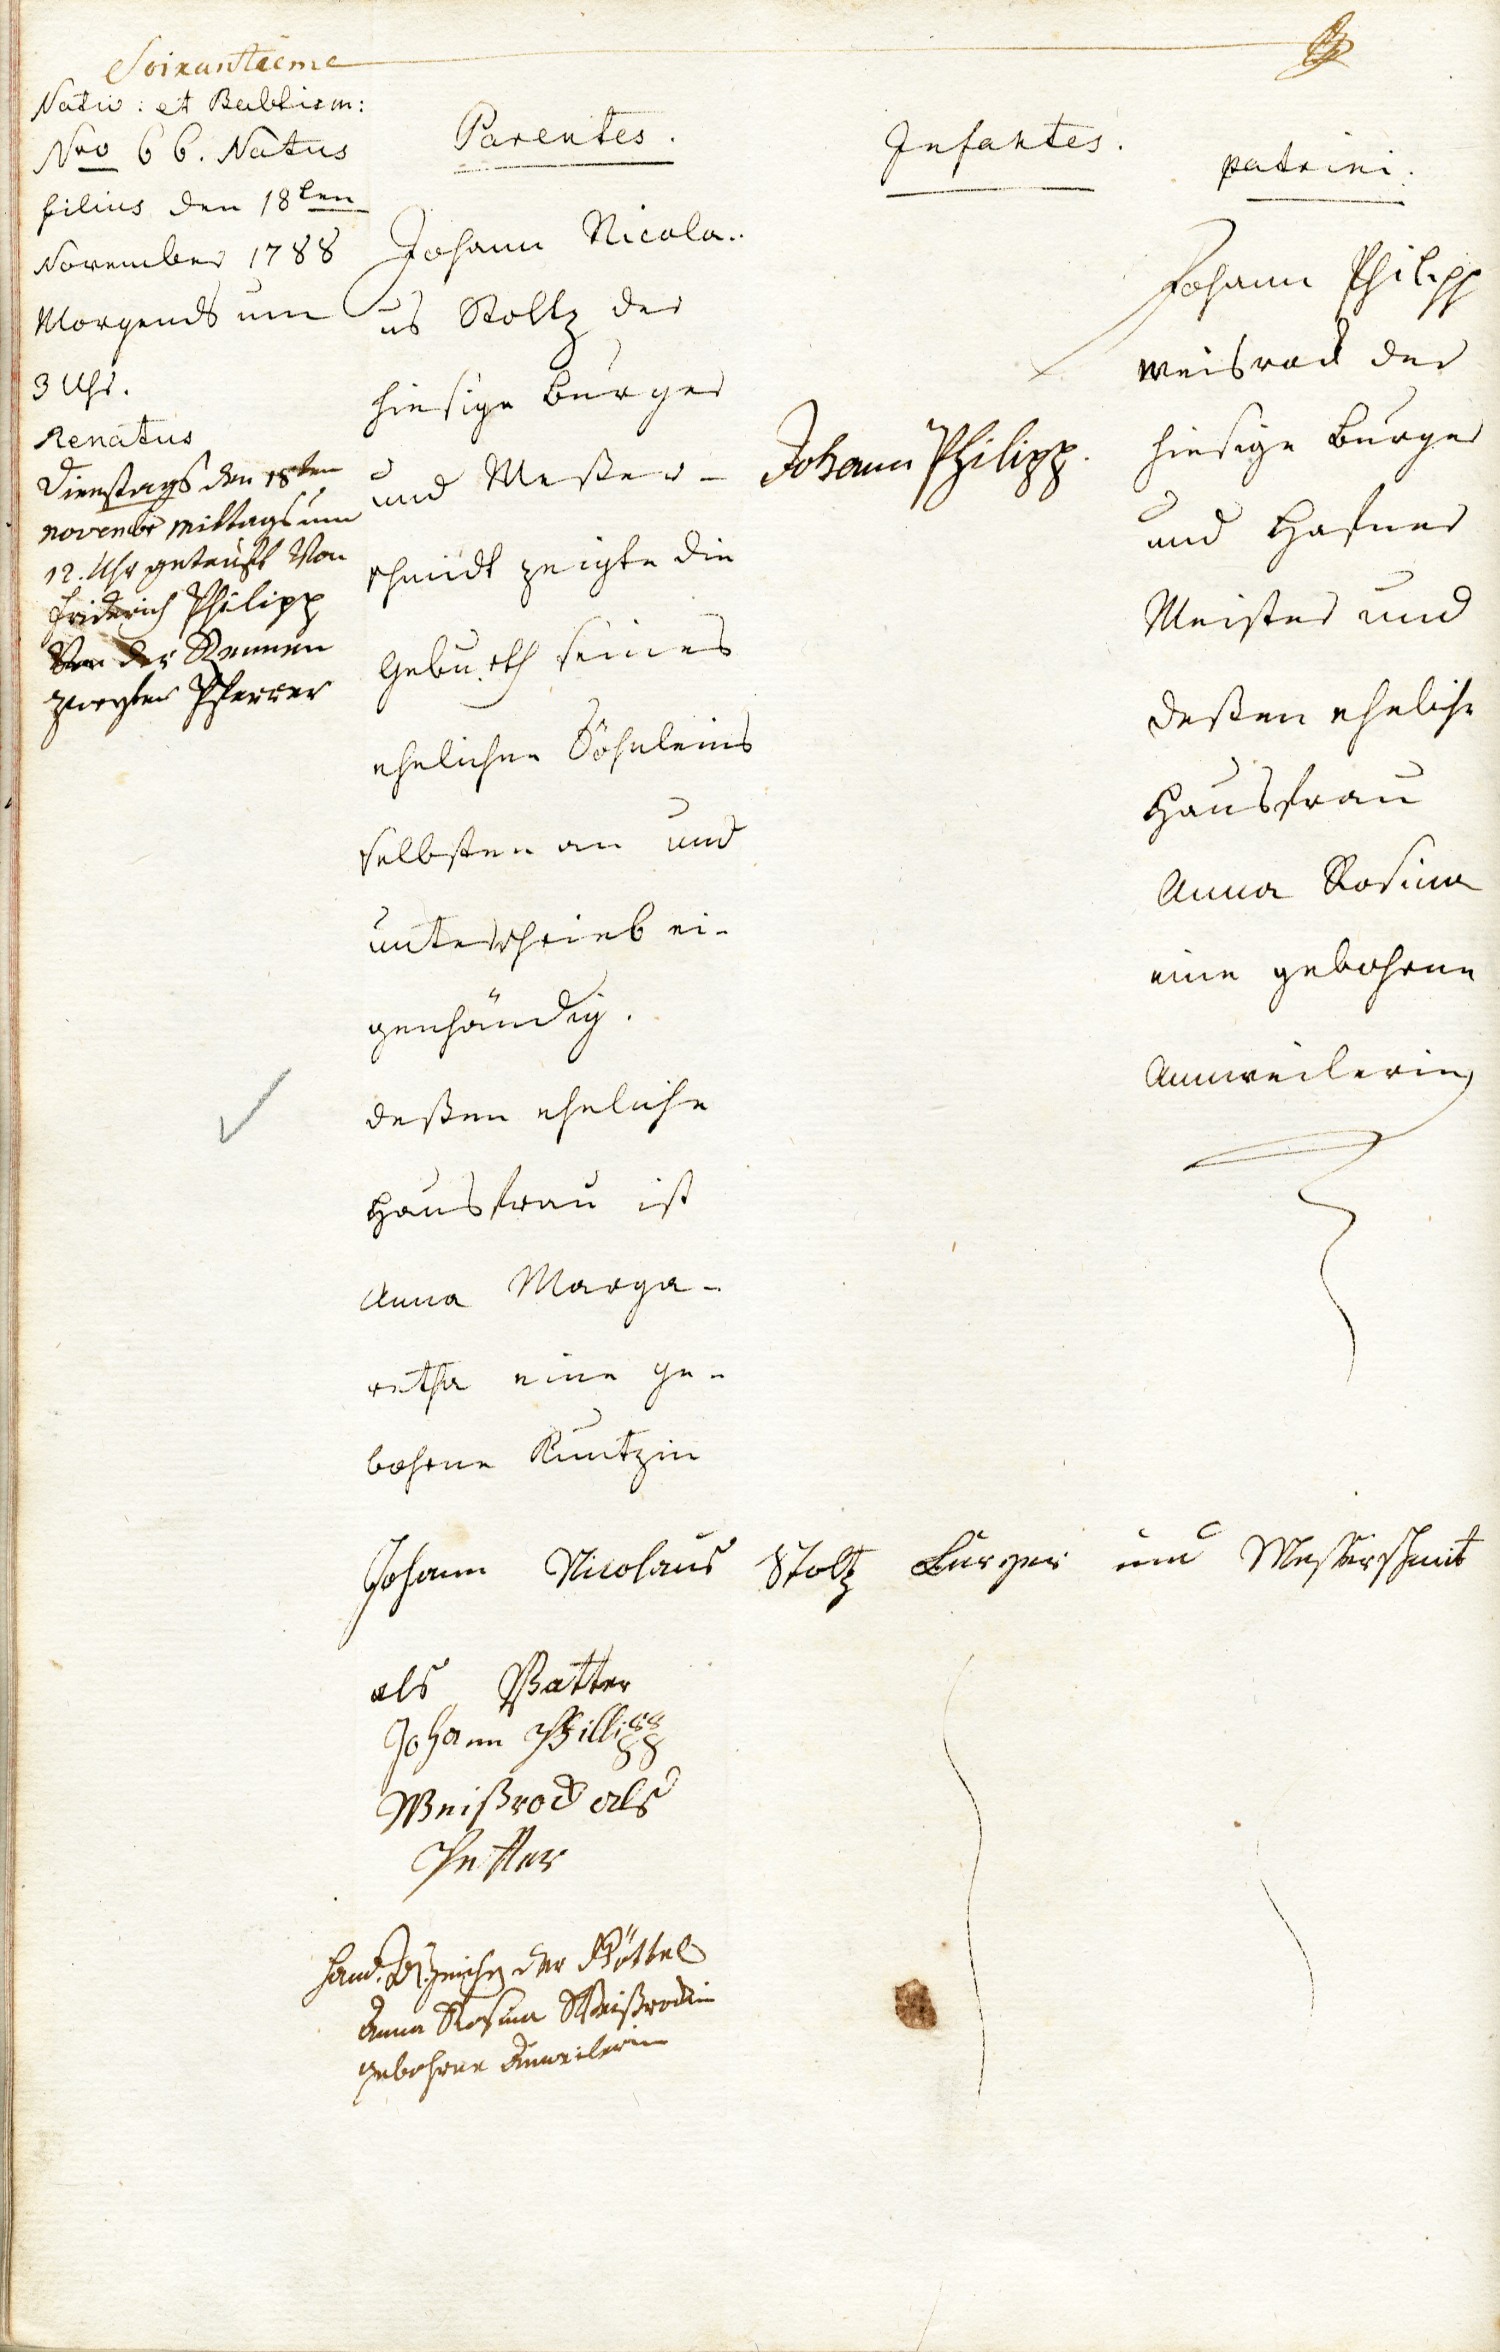 Soixantieme
Nativ: et Babtism:
Nro 66. Natus
filius den 18ten
November 1788
Morgends um
3 Uhr.
Renatus
Dienstags den 18ten
novembr Mittags um
12. Uhr getauft Von
Friderich Philipp
Von der
zweyter Pfarrer
Parentes.
Johann Nicola..
us Stoltz der
hiesige burger
und Meßer-
schmidt zeigte die
Geburth seines
ehelichen Söhnleins
selbsten an und
unterschrieb ei-
genhändig.
deßen eheliche
Hausfrau ist
Anna Marga-
retha eine ge-
bohrne Kuntzin
Infantes.
Johann Philipp.
patrini.
Johann Philipp
weisrod der
hiesige burger
und Hafner
Meister und
deßen eheliche
Hausfrau
Anna Rosina
eine gebohrne
Annweilerin
Johann Nicolaus Stoltz Burger und Messerschmit
als Vatter
Johann Phillipp
Weißrod als
Petter
Hand Zeichen der Göttel
Anna Rosina Weißrodin
gebohrne Anweilerin